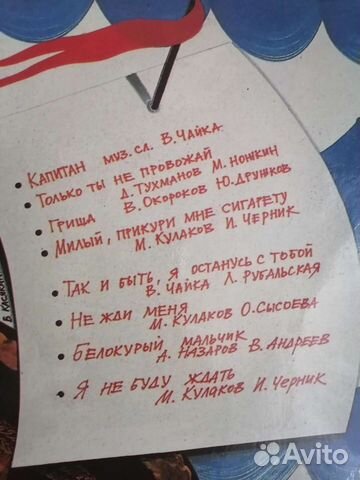 • Капитан муз.сл. В.Чайка
• Только ты не провожай
Д.Тухманов М.Ношкин
• Гриша В.Окороков Ю.Друшков
• Милый, прикури мне сигарету
М.Кулаков И.Черник
• Так и быть, я останусь с тобой
В.Чайка Л.Рубальская
• Не жди меня
М.Кулаков О.Сысоева
• Белокурый мальчик
А.Назаров В.Андреев
• Я не буду ждать
М.Кулаков И.Черник
Avito